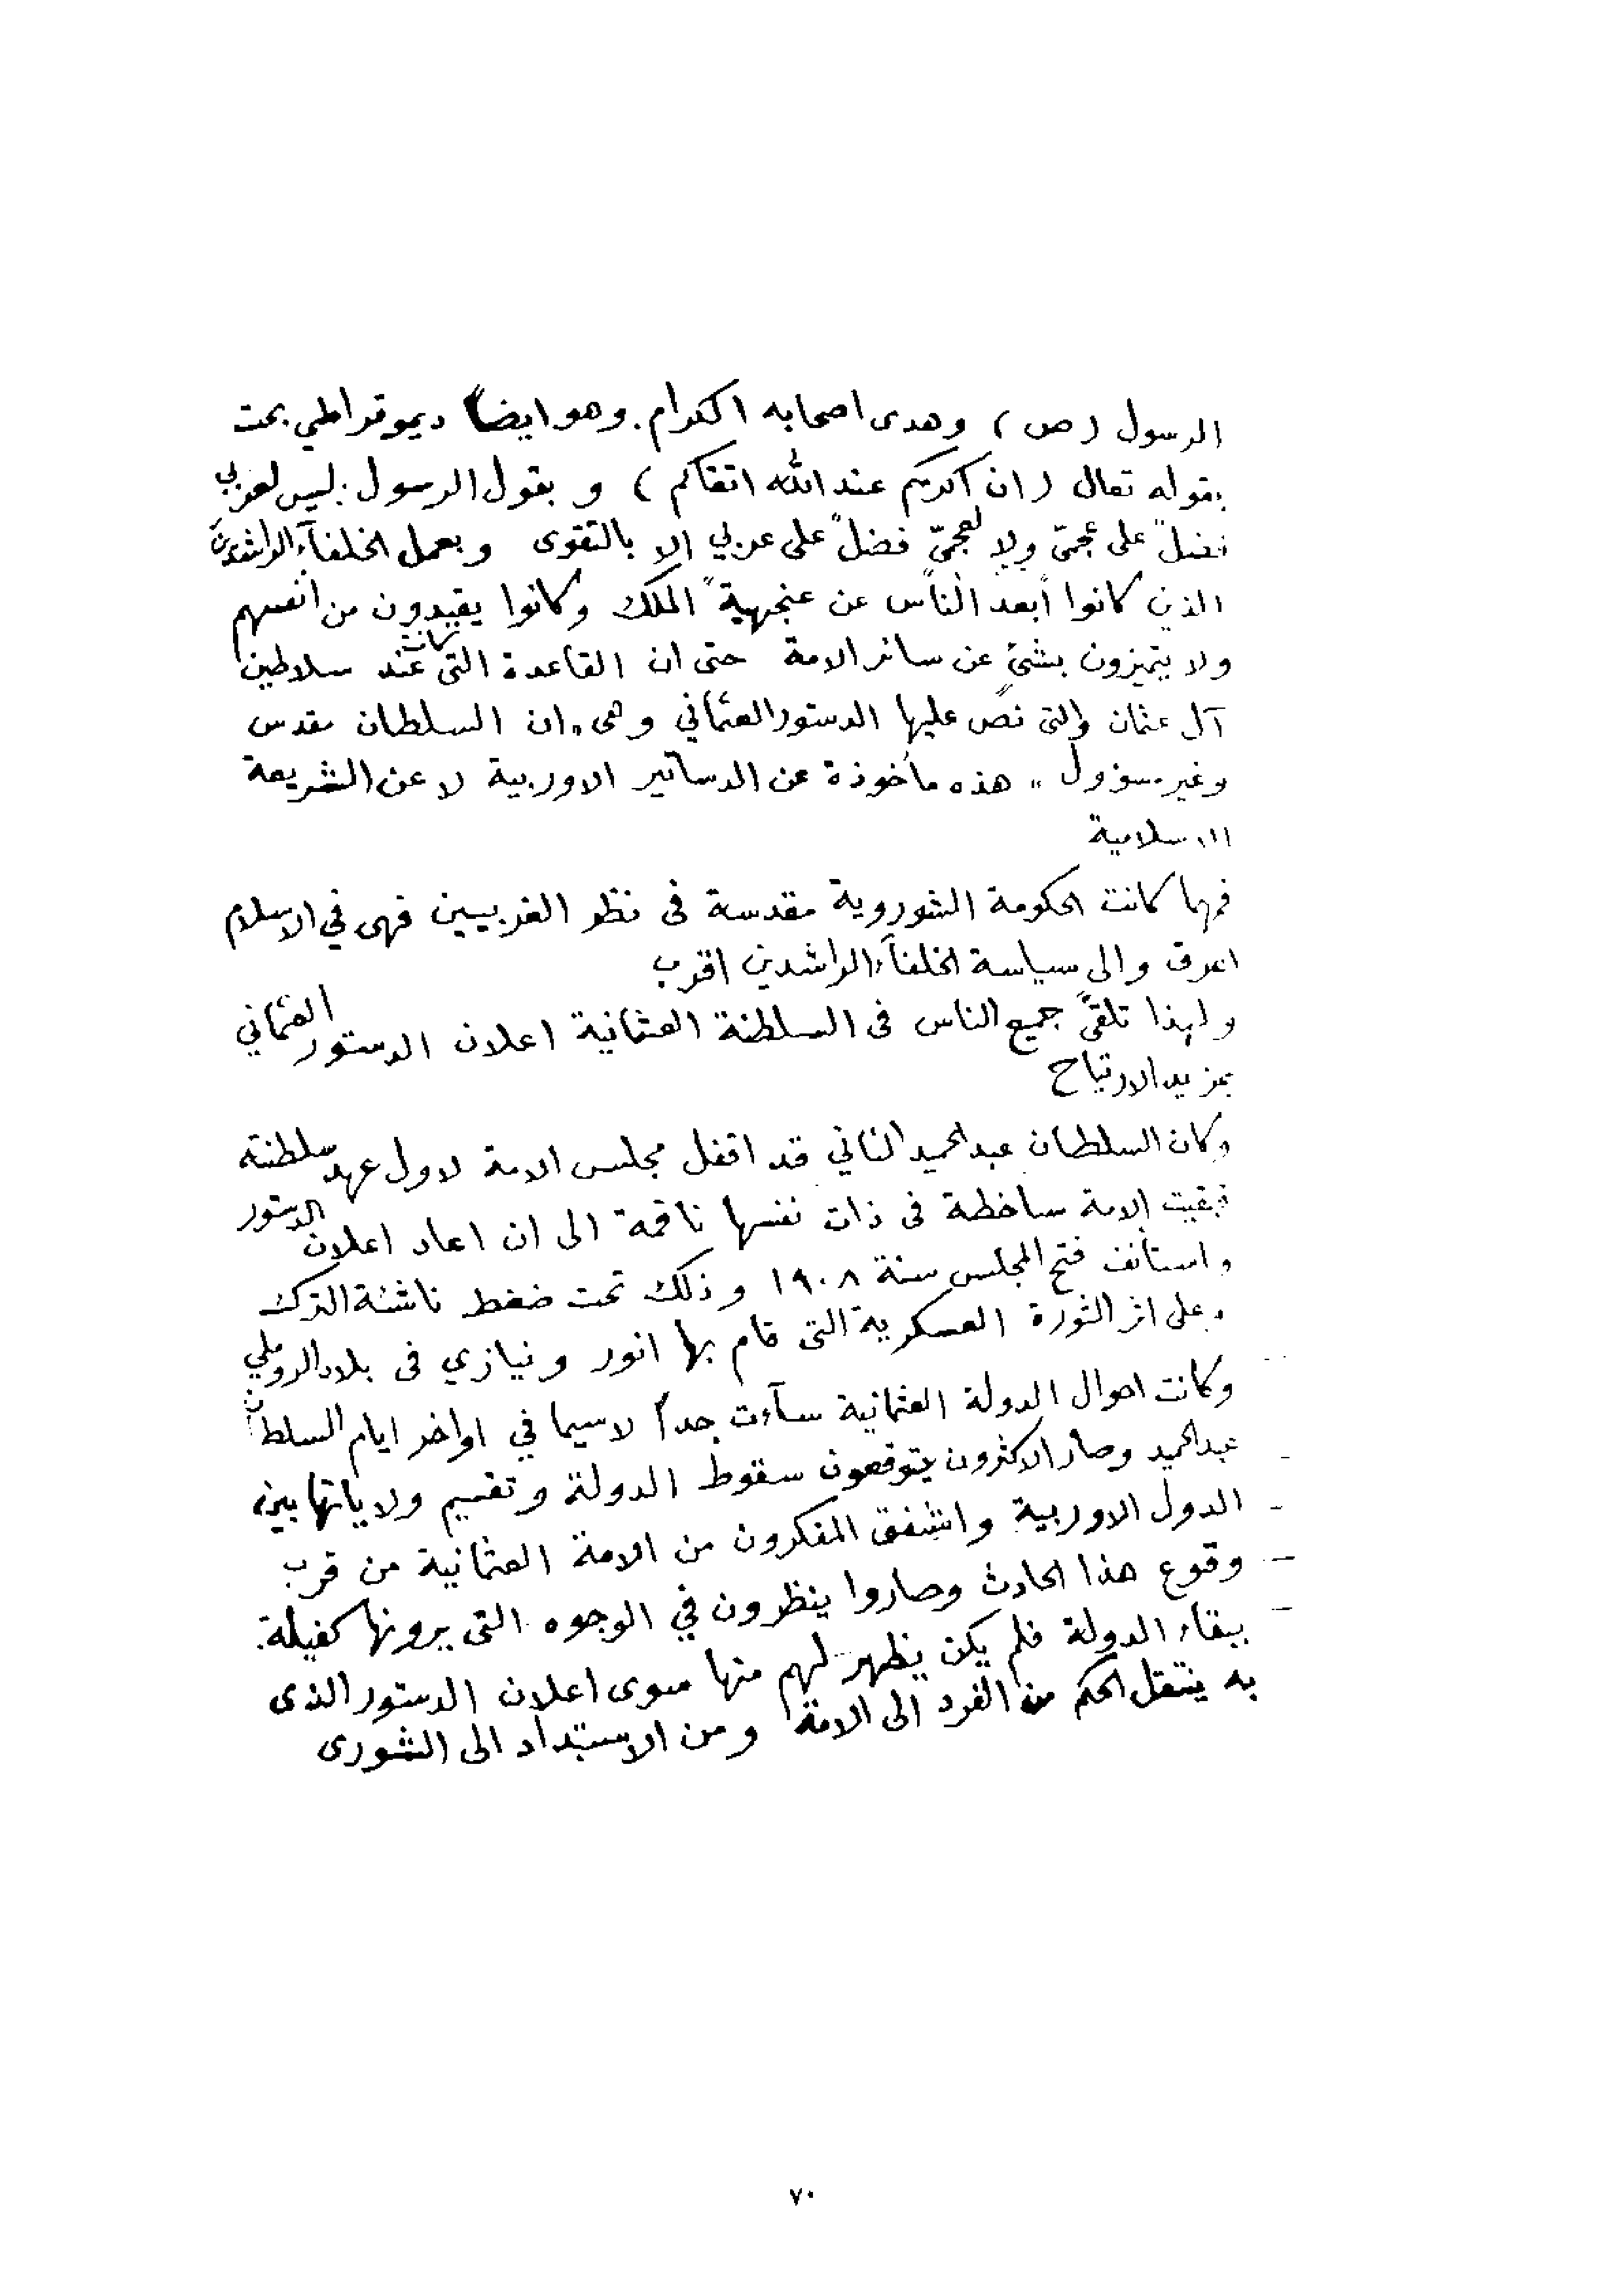 الرسول (ص) وهدى اصحابه الكرام. وهو ايضاً ديموقراطي بحت
بقوله تعالى (ان اكرمكم عند الله اتقاكم) و بقول الرسول: ليس لعربي
فضلٌ على عجميّ ولا لعجميّ فضلٌ على عربي الا بالتقوى وبعمل الخلفآء الراشدين
الذين كانوا أبعد الناس عن عنجهية الملك وكانوا يقيدون من انفسهم
ولا يتميزون بشئ عن سائر الامة حتى ان القاعدة التى كانت عند سلاطين
آل عثمان والتى نص عليها الدستور العثماني وهى „ان السلطان مقدس
وغير مسؤول „ هذه مأخوذة عن الدساتير الاوربية لا عن الشريعة
الاسلامية
فمهما كانت الحكومة الشوروية مقدسة فى نظر الغربيين فهى في الاسلام
اعرق والى سياسة الخلفآء الراشدين اقرب
ولهذا تلقىّ جميع الناس فى السلطنة العثمانية اعلان الدستور العثماني
بمزيد الارتياح
وكان السلطان عبد الحميد الثاني قد اقفل مجلس الامة لاول عهد سلطنته
فبقيت الامة ساخطة فى ذات نفسها ناقمة الى ان اعاد اعلان الدستور
واستأنف فتح المجلس سنة ١٩٠٨ وذلك تحت ضغط ناشئة الترك
وعلى اثر الثورة العسكرية التى قام بها انور ونيازي فى بلاد الروملي
وكانت احوال الدولة العثمانية سآءت جداً لا سيما في اواخر ايام السلطان
عبد الحميد وصار الاكثرون يتوقعون سقوط الدولة وتقسيم ولاياتها بين
الدول الاوربية واشفق المفكرون من الامة العثمانية من قرب
وقوع هذا الحادث وصاروا ينظرون في الوجوه التى يرونها كفيلة
ببقاء الدولة فلم يكن يظهر لهم منها سوى اعلان الدستور الذى
به ينتقل الحكم من الفرد الى الامة ومن الاستبداد الى الشورى
٧٠